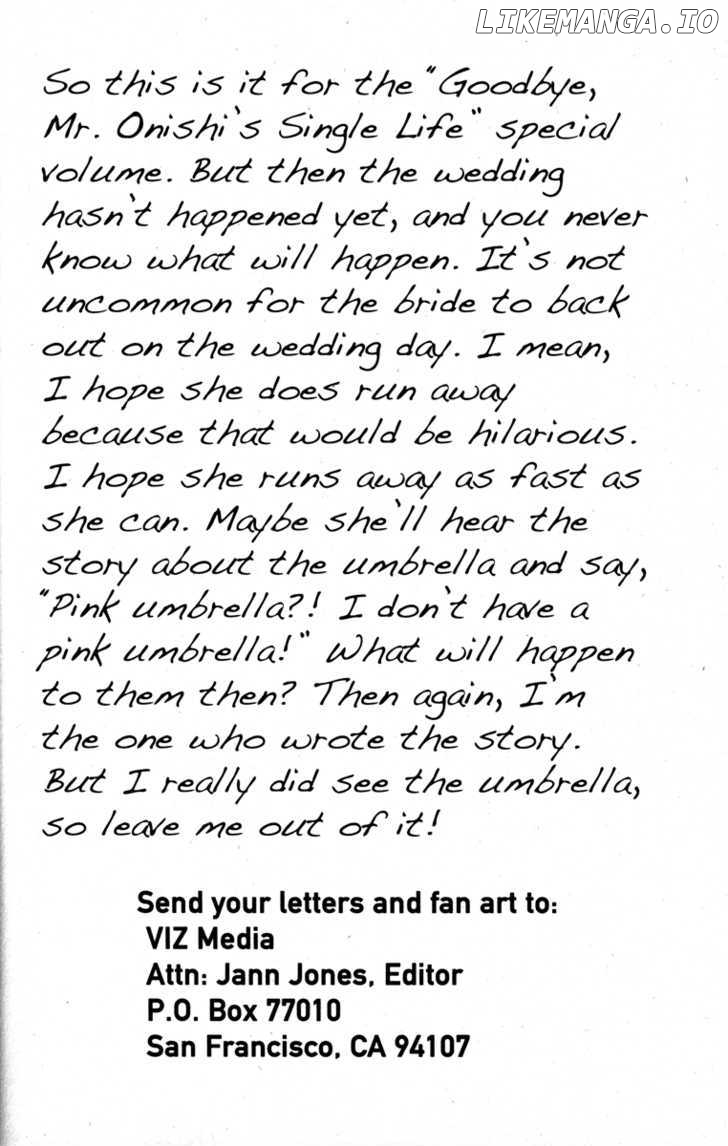 LIKEMANGA.IO
So this is it for the "Goodbye,
Mr. Onishi's Single Life" special
volume. But then the wedding
hasn't happened yet, and you never
know what will happen. It's not
uncommon for the bride to back
out on the wedding day. I mean,
I hope she does run away
because that would be hilarious.
I hope she runs away as fast as
she can. Maybe she'll hear the
story about the umbrella and say,
"Pink umbrella?! I don't have a
pink umbrella!" What will happen
to them then? Then again, I'm
the one who wrote the story.
But I really did see the umbrella,
so leave me out of it!
Send your letters and fan art to:
VIZ Media
Attn: Jann Jones, Editor
P.O. Box 77010
San Francisco, CA 94107